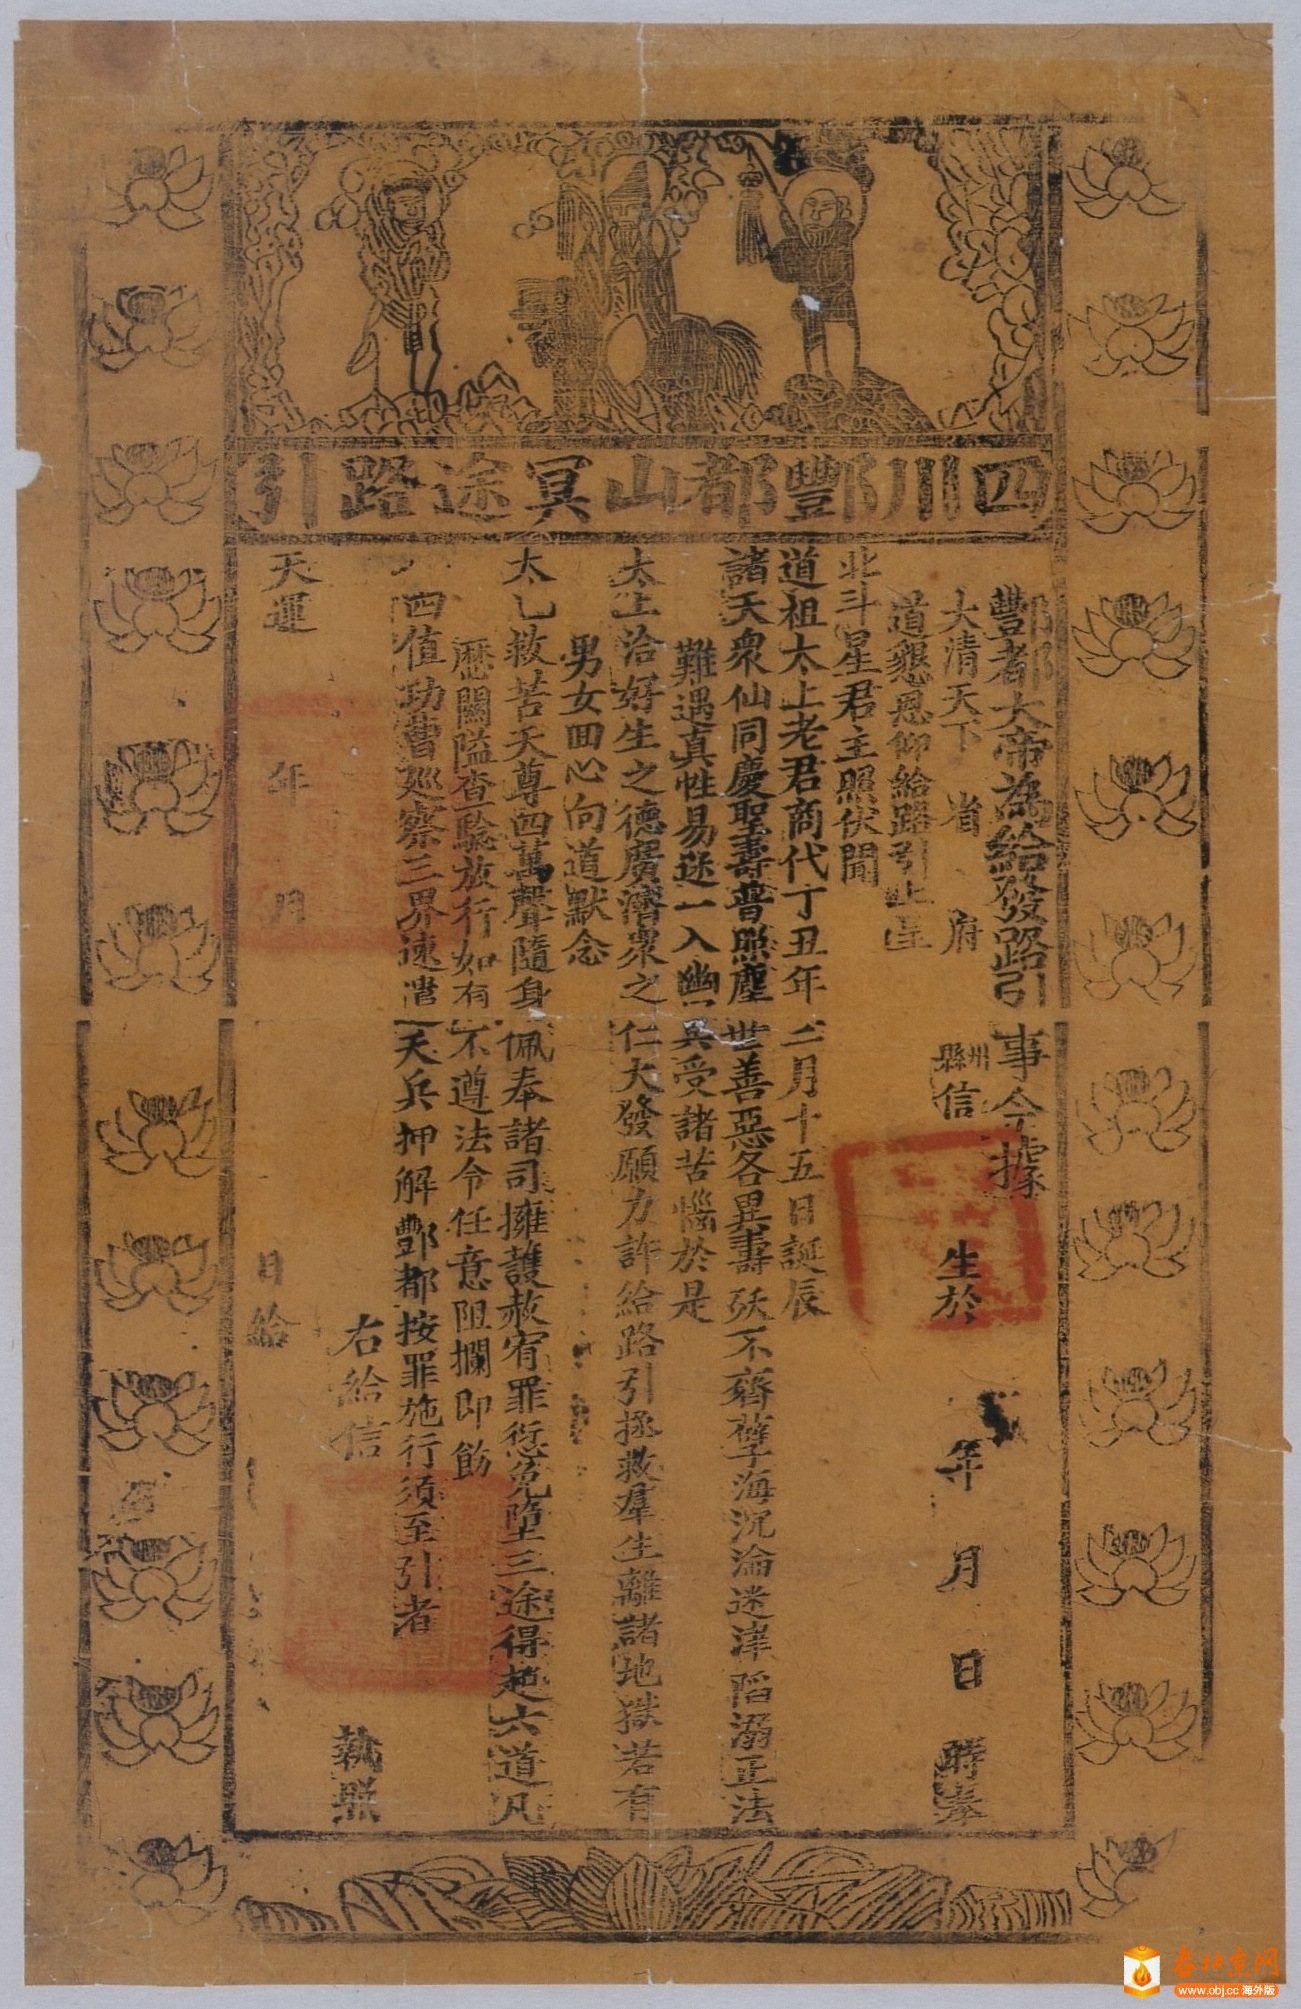 四川酆都山冥途路引
酆都大帝為給發路引事今據
大清天下 省 府 州縣信 生於 年 月 日 時奉
道懇恩仰給路引上呈
北斗星君主照伏聞
道祖太上老君商代丁丑年二月十五日誕辰
諸天衆仙同慶聖壽普照塵世善惡各異壽殀不齊孽海沉淪迷津陷溺正法
難遇真性易迷一入幽 受諸苦惱於是
太上洽好生之德廣濟衆之仁大發願力許給路引拯救羣生離諸地獄若有
男女回心向道默念
太乙救苦天尊四萬聲隨身佩奉諸司擁護赦宥罪愆免墮三途得超六道凡
歷關隘查驗放行如有不遵法令任意阻攔即飭
四值功曹廵察三界速遣天兵押解酆都按罪施行須至引者
右給信 執照
天運 年 月 日給
老北京网
www.obj.cc 海外版